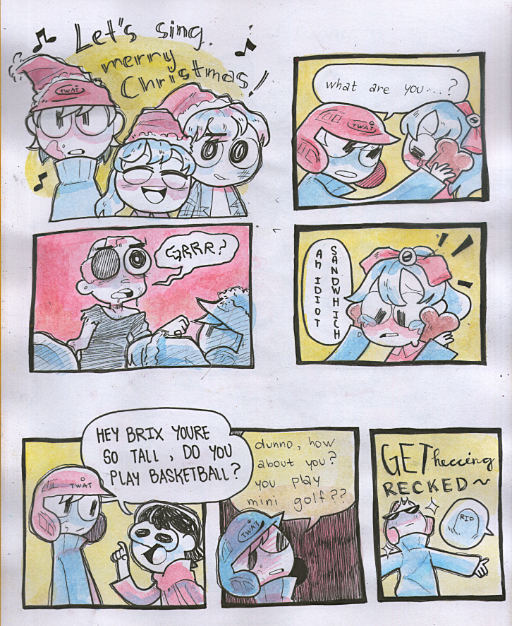 Let's sing.
merry
Christmas!
TWAT
what are you...?
TWAT
GRRR?
AN IDIOT
SANDWHICH
HEY BRIX YOURE
SO TALL, DO YOU
PLAY BASKETBALL?
TWAT
dunno, how
about you?
you play
mini golf??
TWAT
GET heccing
RECKED~
RIP